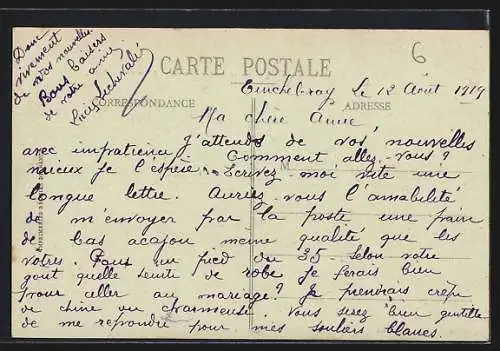 Donc
vivement
de vos nouvelles.
Bons baisers
de votre amie
6
CARTE POSTALE
Tinchebray Le 12 Août 1919
CORRESPONDANCE
ADRESSE
Ma chère Amie
avec impatience j'attends de vos nouvelles
Comment allez-vous?
mieux je l'espère. Ecrivez-moi vite une
M
longue lettre. Auriez-vous l'amabilité
de m'envoyer par la poste une paire
de bas acajou même qualité que les
vôtres. Pour un pied du 35. Selon votre
gout quelle teinte de robe je ferais bien
pour aller au mariage? Je prendrais crêpe
de chine ou charmeuse. Vous serez bien gentille
de me répondre pour mes souliers blancs.